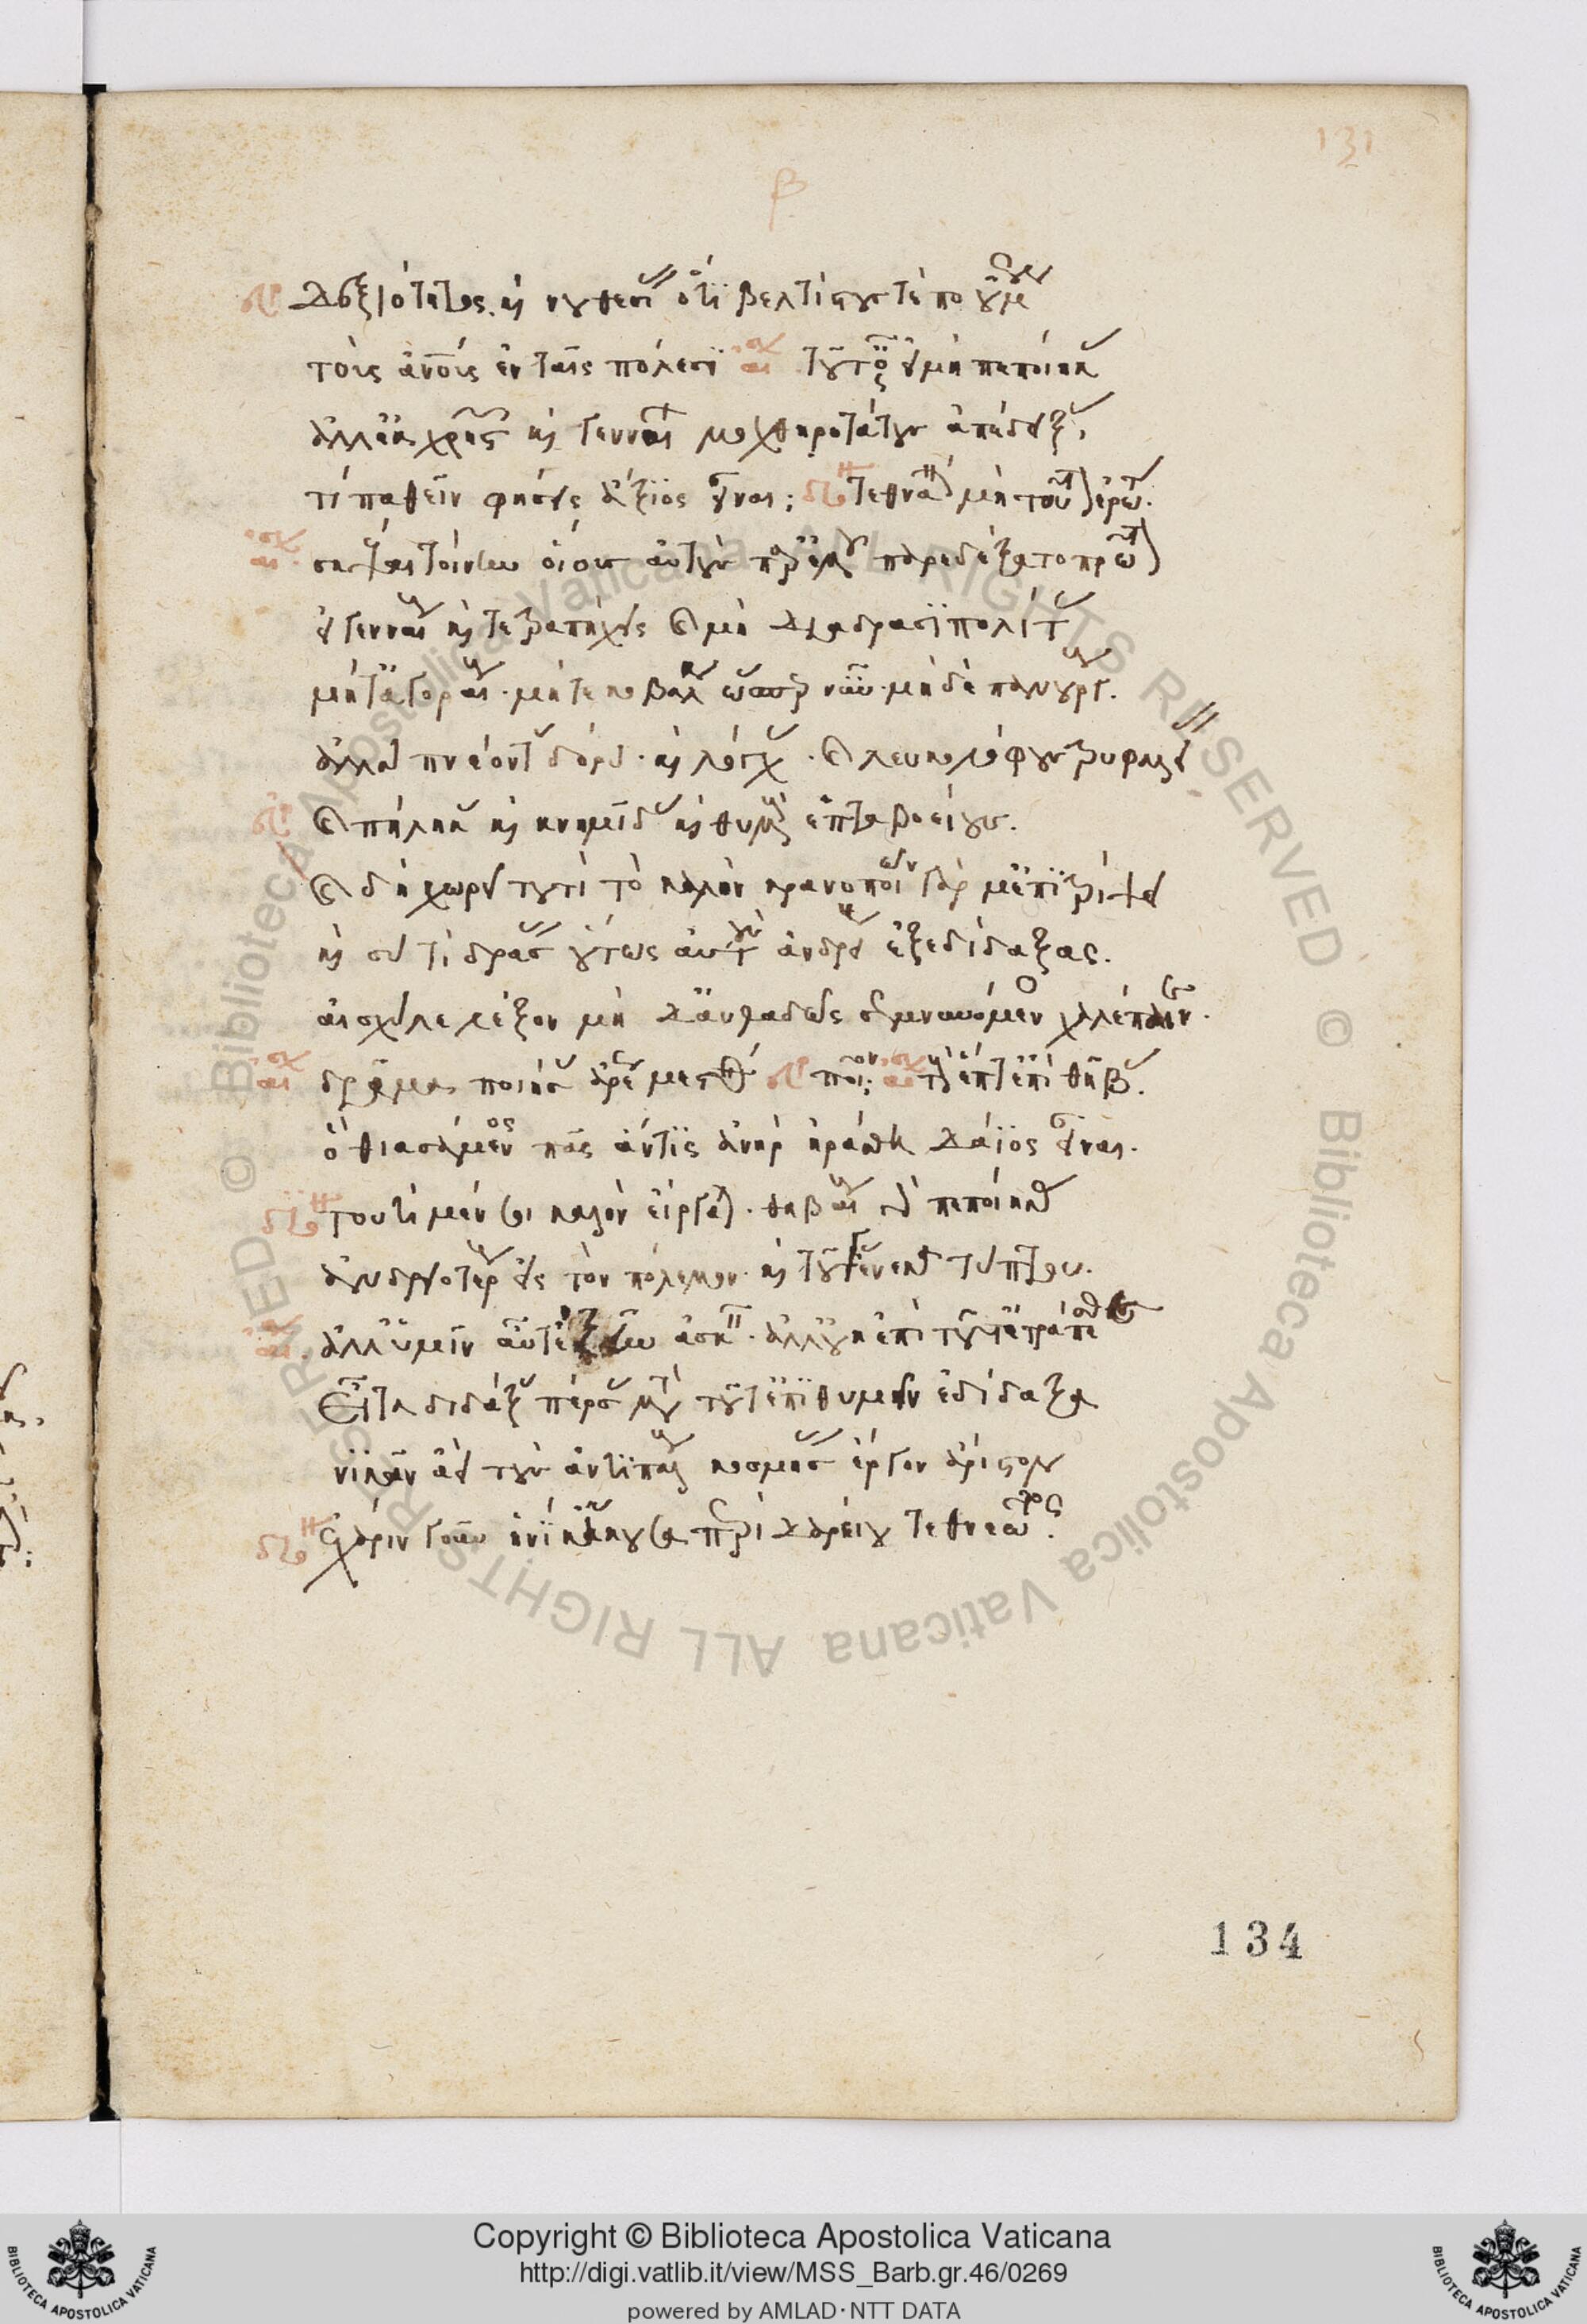 131
β
εὐρ δεξιότητος καὶ νουθεσίας ὅτι βελτίους τε ποιοῦμεν
τοὺς ἀνοὺς ἐν ταῖς πόλεσιν αἰσχ τοῦτ' οὖν εἰ μὴ πεποίηκας
ἀλλ' ἐκ χρηστῶν καὶ γενναίων μοχθηροτάτους ἀπέδειξας,
τί παθεῖν φήσεις ἄξιος εἶναι; διο τεθνάναι μὴ τοῦτον ἐρώτα.
αἰσχ σκέψαι τοίνυν οἵους αὐτοὺς παρ' ἐμοῦ παρεδέξατο πρῶτον
εἰ γενναίους καὶ τετραπήχεις καὶ μὴ διαδρασιπολίτας
μήτ' ἀγοραίους μήτε κοβάλους ὥσπερ νῦν μηδὲ πανούργους.
ἀλλὰ πνέοντας δόρυ καὶ λόγχας καὶ λευκολόφους τρυφαλείας
εὐρ καὶ πήληκας καὶ κνημῖδας καὶ θυμοὺς ἑπταβοείους.
καὶ δὴ χωρεῖ τουτὶ τὸ κακὸν κρανοποιῶν γάρ μ' ἐπιτρίψει
καὶ σὺ τί δράσας οὕτως αὐτοὺς ἀνδρείους ἐξεδίδαξας.
αἰσχύλε λέξον μὴ δ' αὐθαδῶς σεμνυνόμενος χαλέπαινε.
αἰσχ δρᾶμα ποιήσας ἄρεως μεστόν εὐρ ποῖον; αἰσχ τοὺς ἕπτ' ἐπὶ θήβας.
ὃ θεασάμενος πᾶς ἄν τις ἀνὴρ ἠράσθη δάϊος εἶναι.
διο τουτὶ μέν σοι κακὸν εἴργασται. θηβαίους γὰρ πεποίηκας
ἀνδρειοτέρους εἰς τὸν πόλεμον. καὶ τούτου γ' ἕνεκα τύπτου.
αἰσχ ἀλλ' ὑμῖν αὔτ' ἐξῆν ἀσκεῖν. ἀλλ' οὐκ ἐπὶ τοῦτ' ἐτράπεσθε
εἶτα διδάξας πέρσας μετὰ τοῦτ' ἐπιθυμεῖν ἐδίδαξα
νικᾶν ἀεὶ τοὺς ἀντιπάλους κοσμήσας ἔργον ἄριστον
διο ἐχάρην γοῦν ἡνίκ' ἤκουσα περὶ δαρείου τεθνεῶτος.
134
Copyright © Biblioteca Apostolica Vaticana
http://digi.vatlib.it/view/MSS_Barb.gr.46/0269
powered by AMLAD·NTT DATA